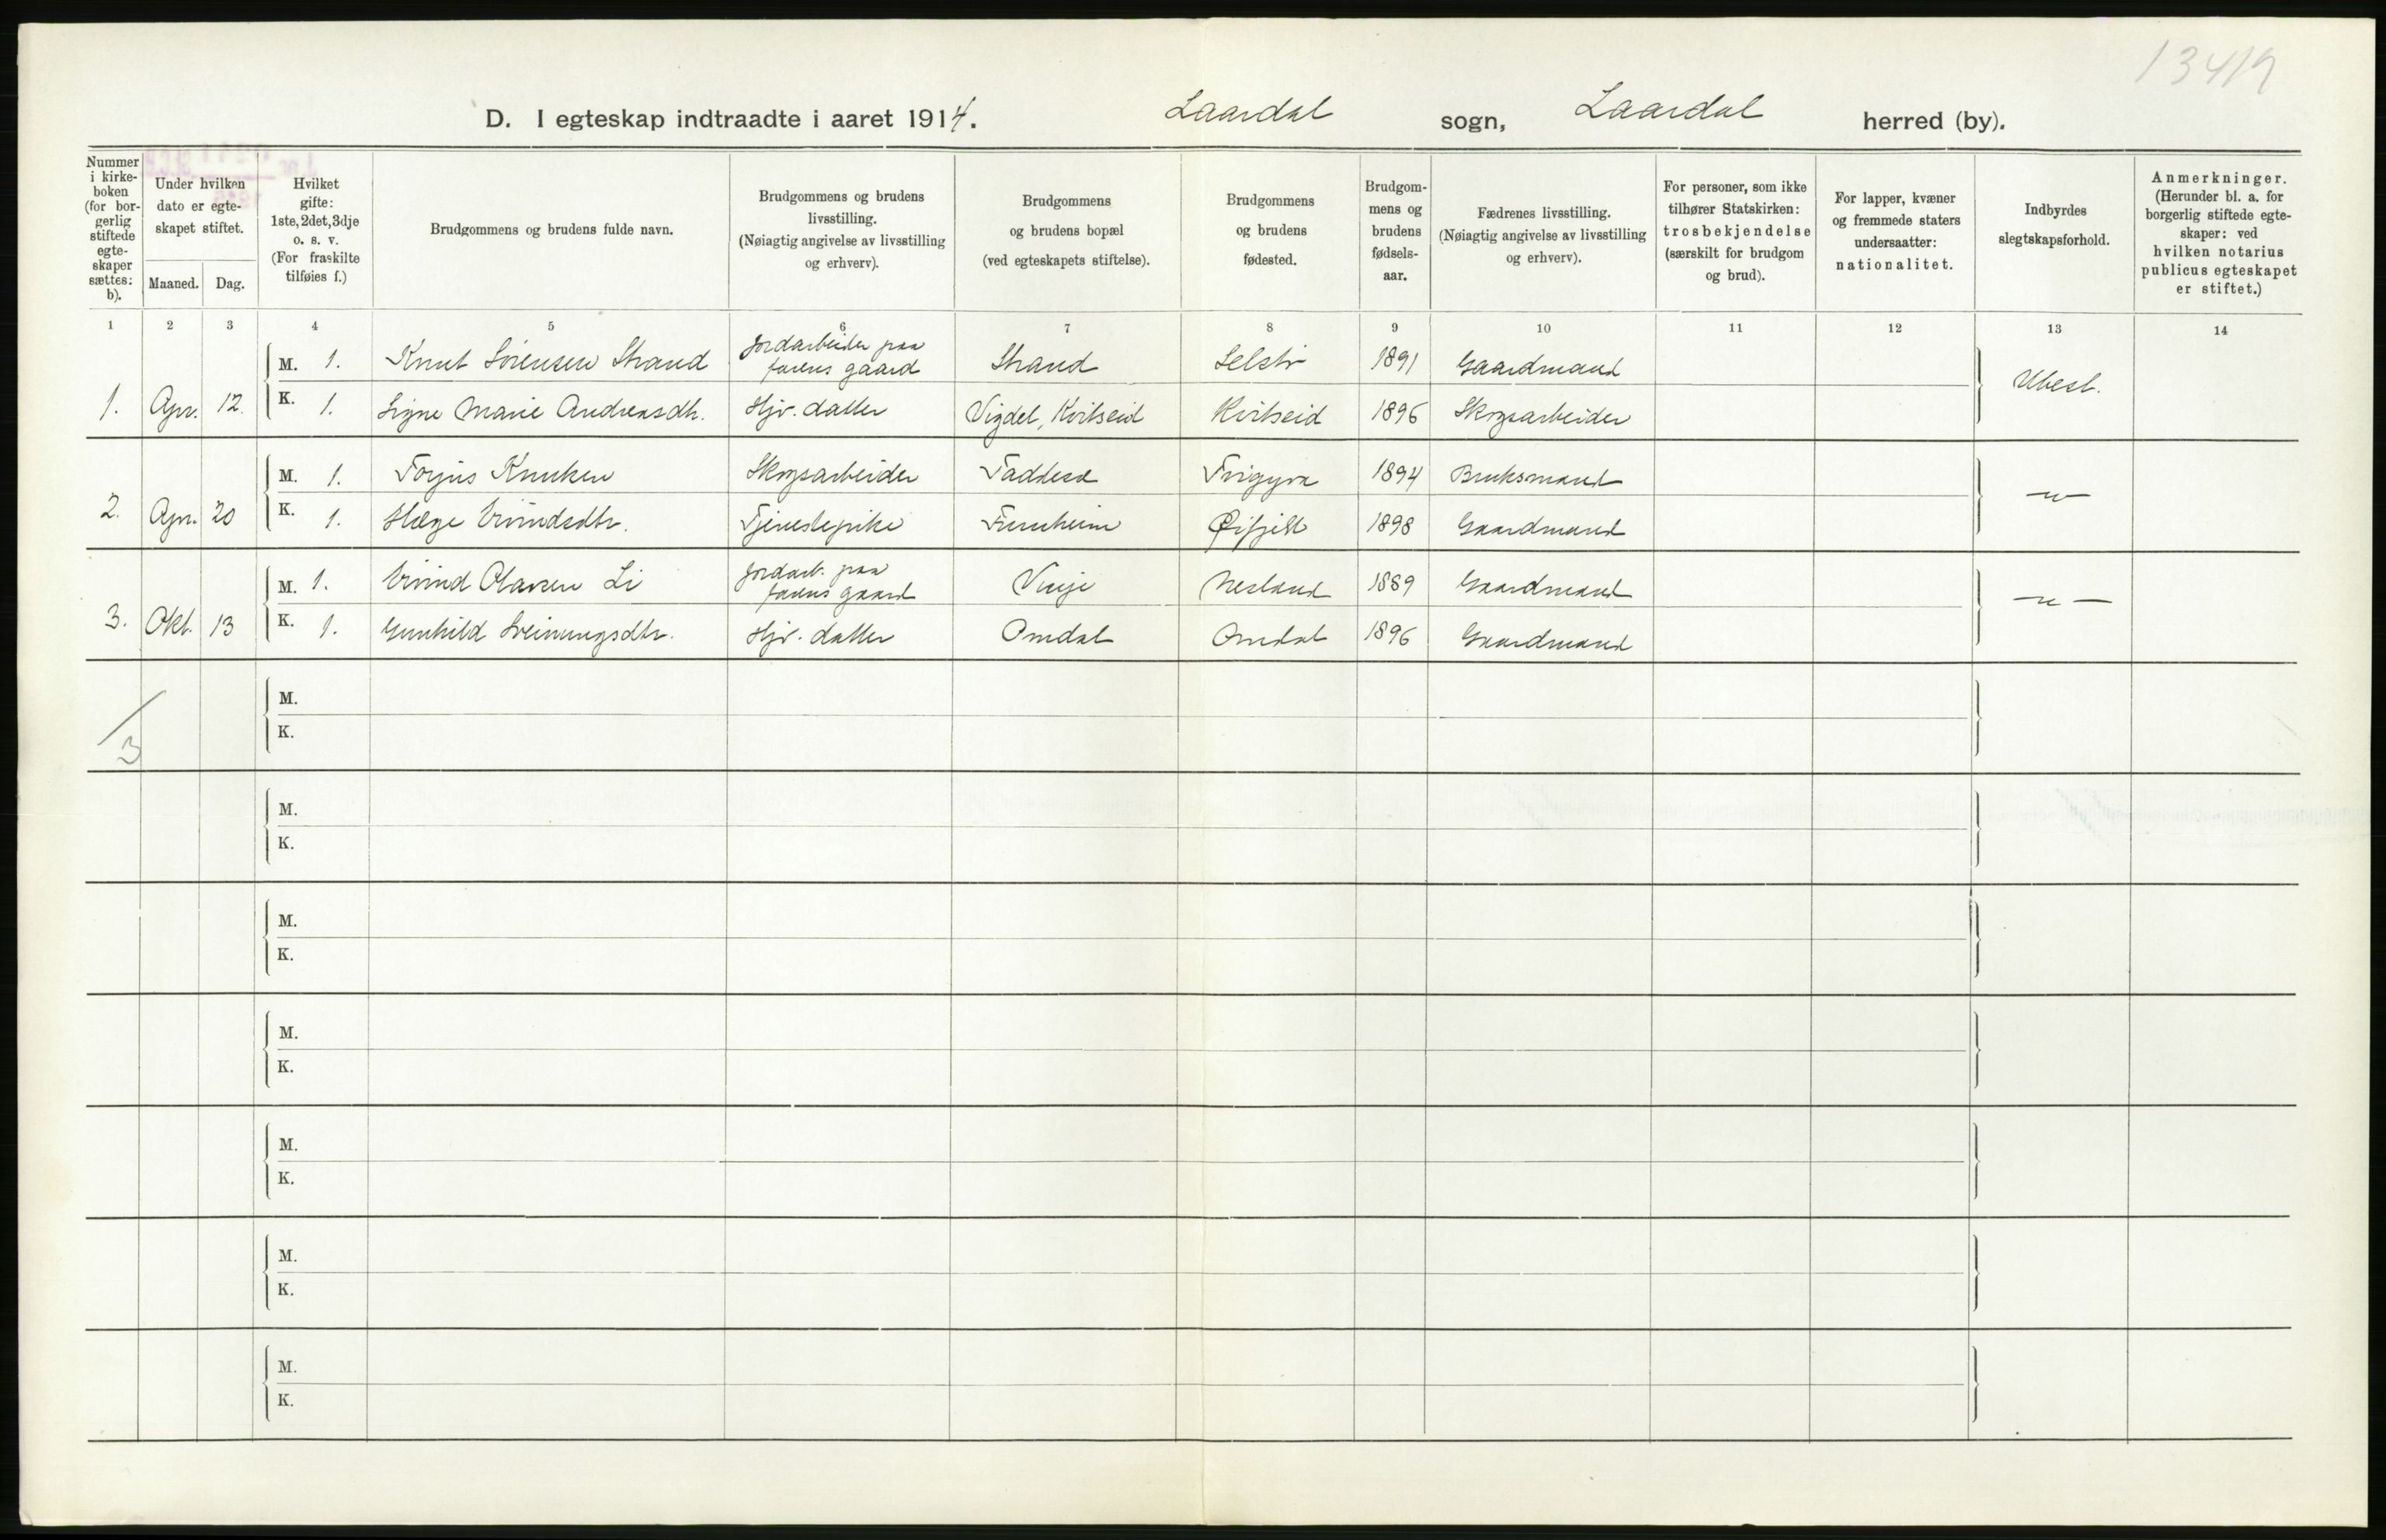 13419
D. I egteskap indtraadte i aaret 1914. Laardal sogn, Laardal herred (by).
Nummer i kirke-boken (for bor-gerlig stiftede egte-skaper sættes: b).
Under hvilken dato er egte-skapet stiftet.
Maaned. Dag.
Hvilket gifte: 1ste, 2det, 3dje o. s. v. (For fraskilte tilføies f.)
Brudgommens og brudens fulde navn.
Brudgommens og brudens livsstilling. (Nøiagtig angivelse av livsstilling og erhverv).
Brudgommens og brudens bopæl (ved egteskapets stiftelse).
Brudgommens og brudens fødested.
Brudgom-mens og brudens fødsels-aar.
Fædrenes livsstilling. (Nøiagtig angivelse av livsstilling og erhverv).
For personer, som ikke tilhører Statskirken: trosbekjendelse (særskilt for brudgom og brud).
For lapper, kvæner og fremmede staters undersaatter: nationalitet.
Indbyrdes slegtskapsforhold.
Anmerkninger. (Herunder bl. a. for borgerlig stiftede egte-skaper: ved hvilken notarius publicus egteskapet er stiftet.)
1 2 3 4 5 6 7 8 9 10 11 12 13 14
M. 1. Knut Sørensen Strand Jordarbeider paa farens gaard Strand 1891 Gaardmand
1. Apr. 12. K. 1. Signe Marie Andreasdtr. Hjv. datter Vigdel, Kvitseid Kvitseid 1896 Skogsarbeider Ubesl.
M. 1. Torjus Knutsen Skogsarbeider 1894 Bruksmand
2. Apr. 20 K. 1. Hæge Eivindsdtr. Tjenestepike Øifjell 1898 Gaardmand —"—
M. 1. Eivind Olavsen Li Jordarb. paa farens gaard Vinje Nesland 1889 Gaardmand
3. Okt. 13 K. 1. Gunhild Sveinungsdtr. Hjv. datter Omdal Omdal 1896 Gaardmand —"—
M.
/3 K.
M.
K.
M.
K.
M.
K.
M.
K.
M.
K.
M.
K.